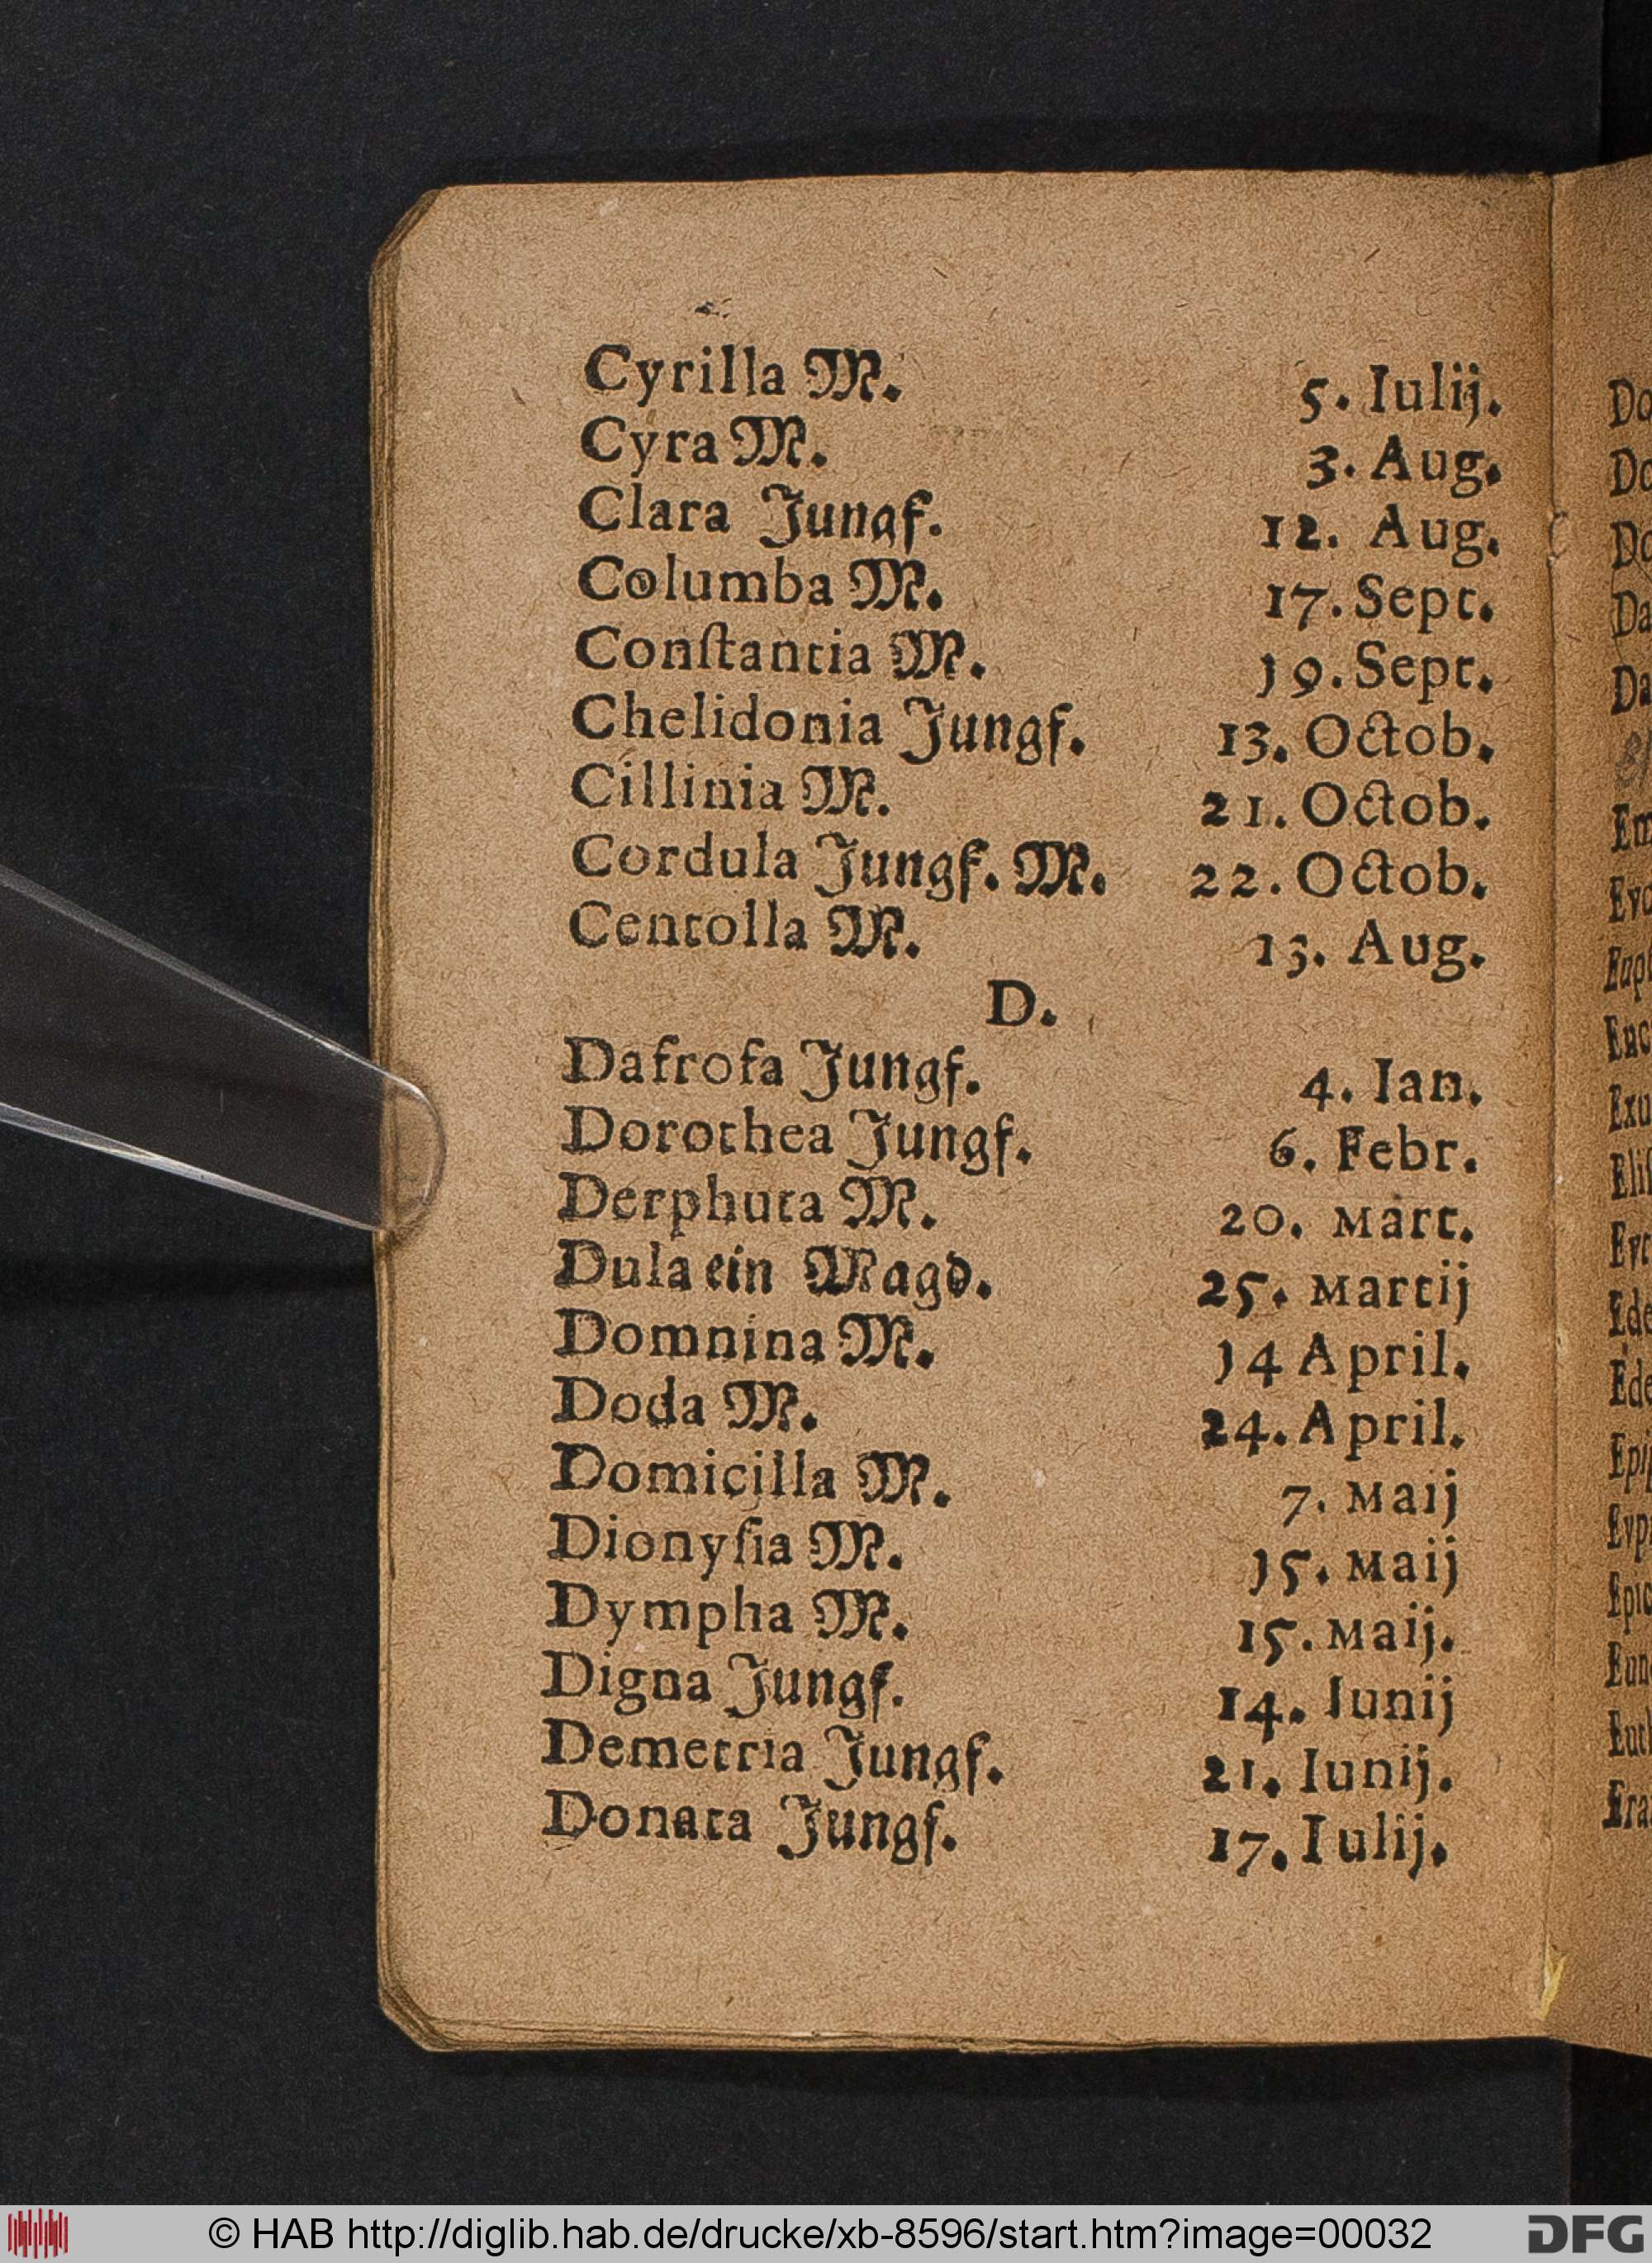 Cyrilla M. 5. Iulij.
Cyra M. 3. Aug.
Clara Jungf. 12. Aug.
Columba M. 17. Sept.
Conſtantia M. 19. Sept.
Chelidonia Jungf. 13. Octob.
Cillinia M. 21. Octob.
Cordula Jungf. M. 22. Octob.
Centolla M. 13. Aug.
D.
Dafroſa Jungf. 4. Ian.
Dorothea Jungf. 6. Febr.
Derphuta M. 20. Mart.
Dula ein Magd. 25. Martij
Domnina M. 14 April.
Doda M. 24. April.
Domicilla M. 7. Maij
Dionyſia M. 15. Maij
Dympha M. 15. Maij.
Digna Jungf. 14. Iunij
Demetria Jungf. 21. Iunij.
Donata Jungf. 17. Iulij.
© HAB http://diglib.hab.de/drucke/xb-8596/start.htm?image=00032
DFG